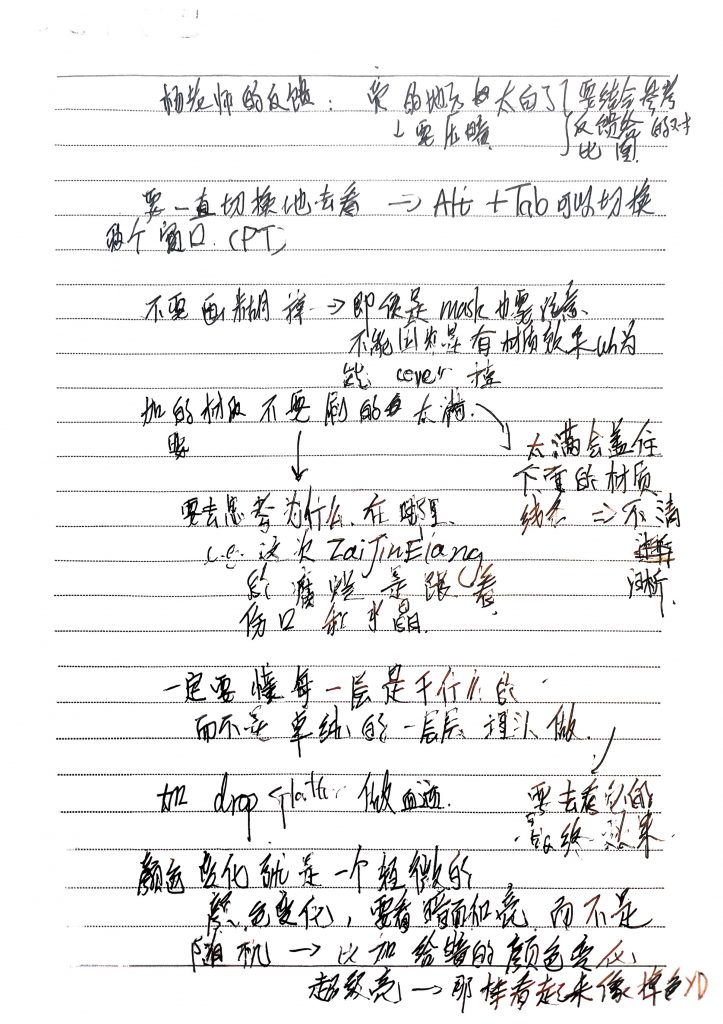 杨老师的反馈: 的地方 太白了 要结合参考
↓要压暗 反馈给的对
比图
要一直切换地去看 => Alt + Tab可以切换
两个窗口.(PT)
不要画糊掉 → 即使是 mask 也要注意
不能因为是有材质效果 以为
能 cover 掉
加的材质不要刷的太满.
要
太满会盖住
下面的材质
要去思考为什么.在哪里. => 不清
i.e. 这次 ZaiJin
腐烂是跟着
伤口和水晶. 晰
一定要懂每一层是干什么的
而不是单纯的一层层埋头做.
加 drop splatter 做血迹. 要去看它的
最终效果
颜色变化就是一个轻微的
颜色变化, 要看暗面和亮 而不是
随机 → 比如给暗的颜色变化
超级亮 → 那样看起来像掉色 YD